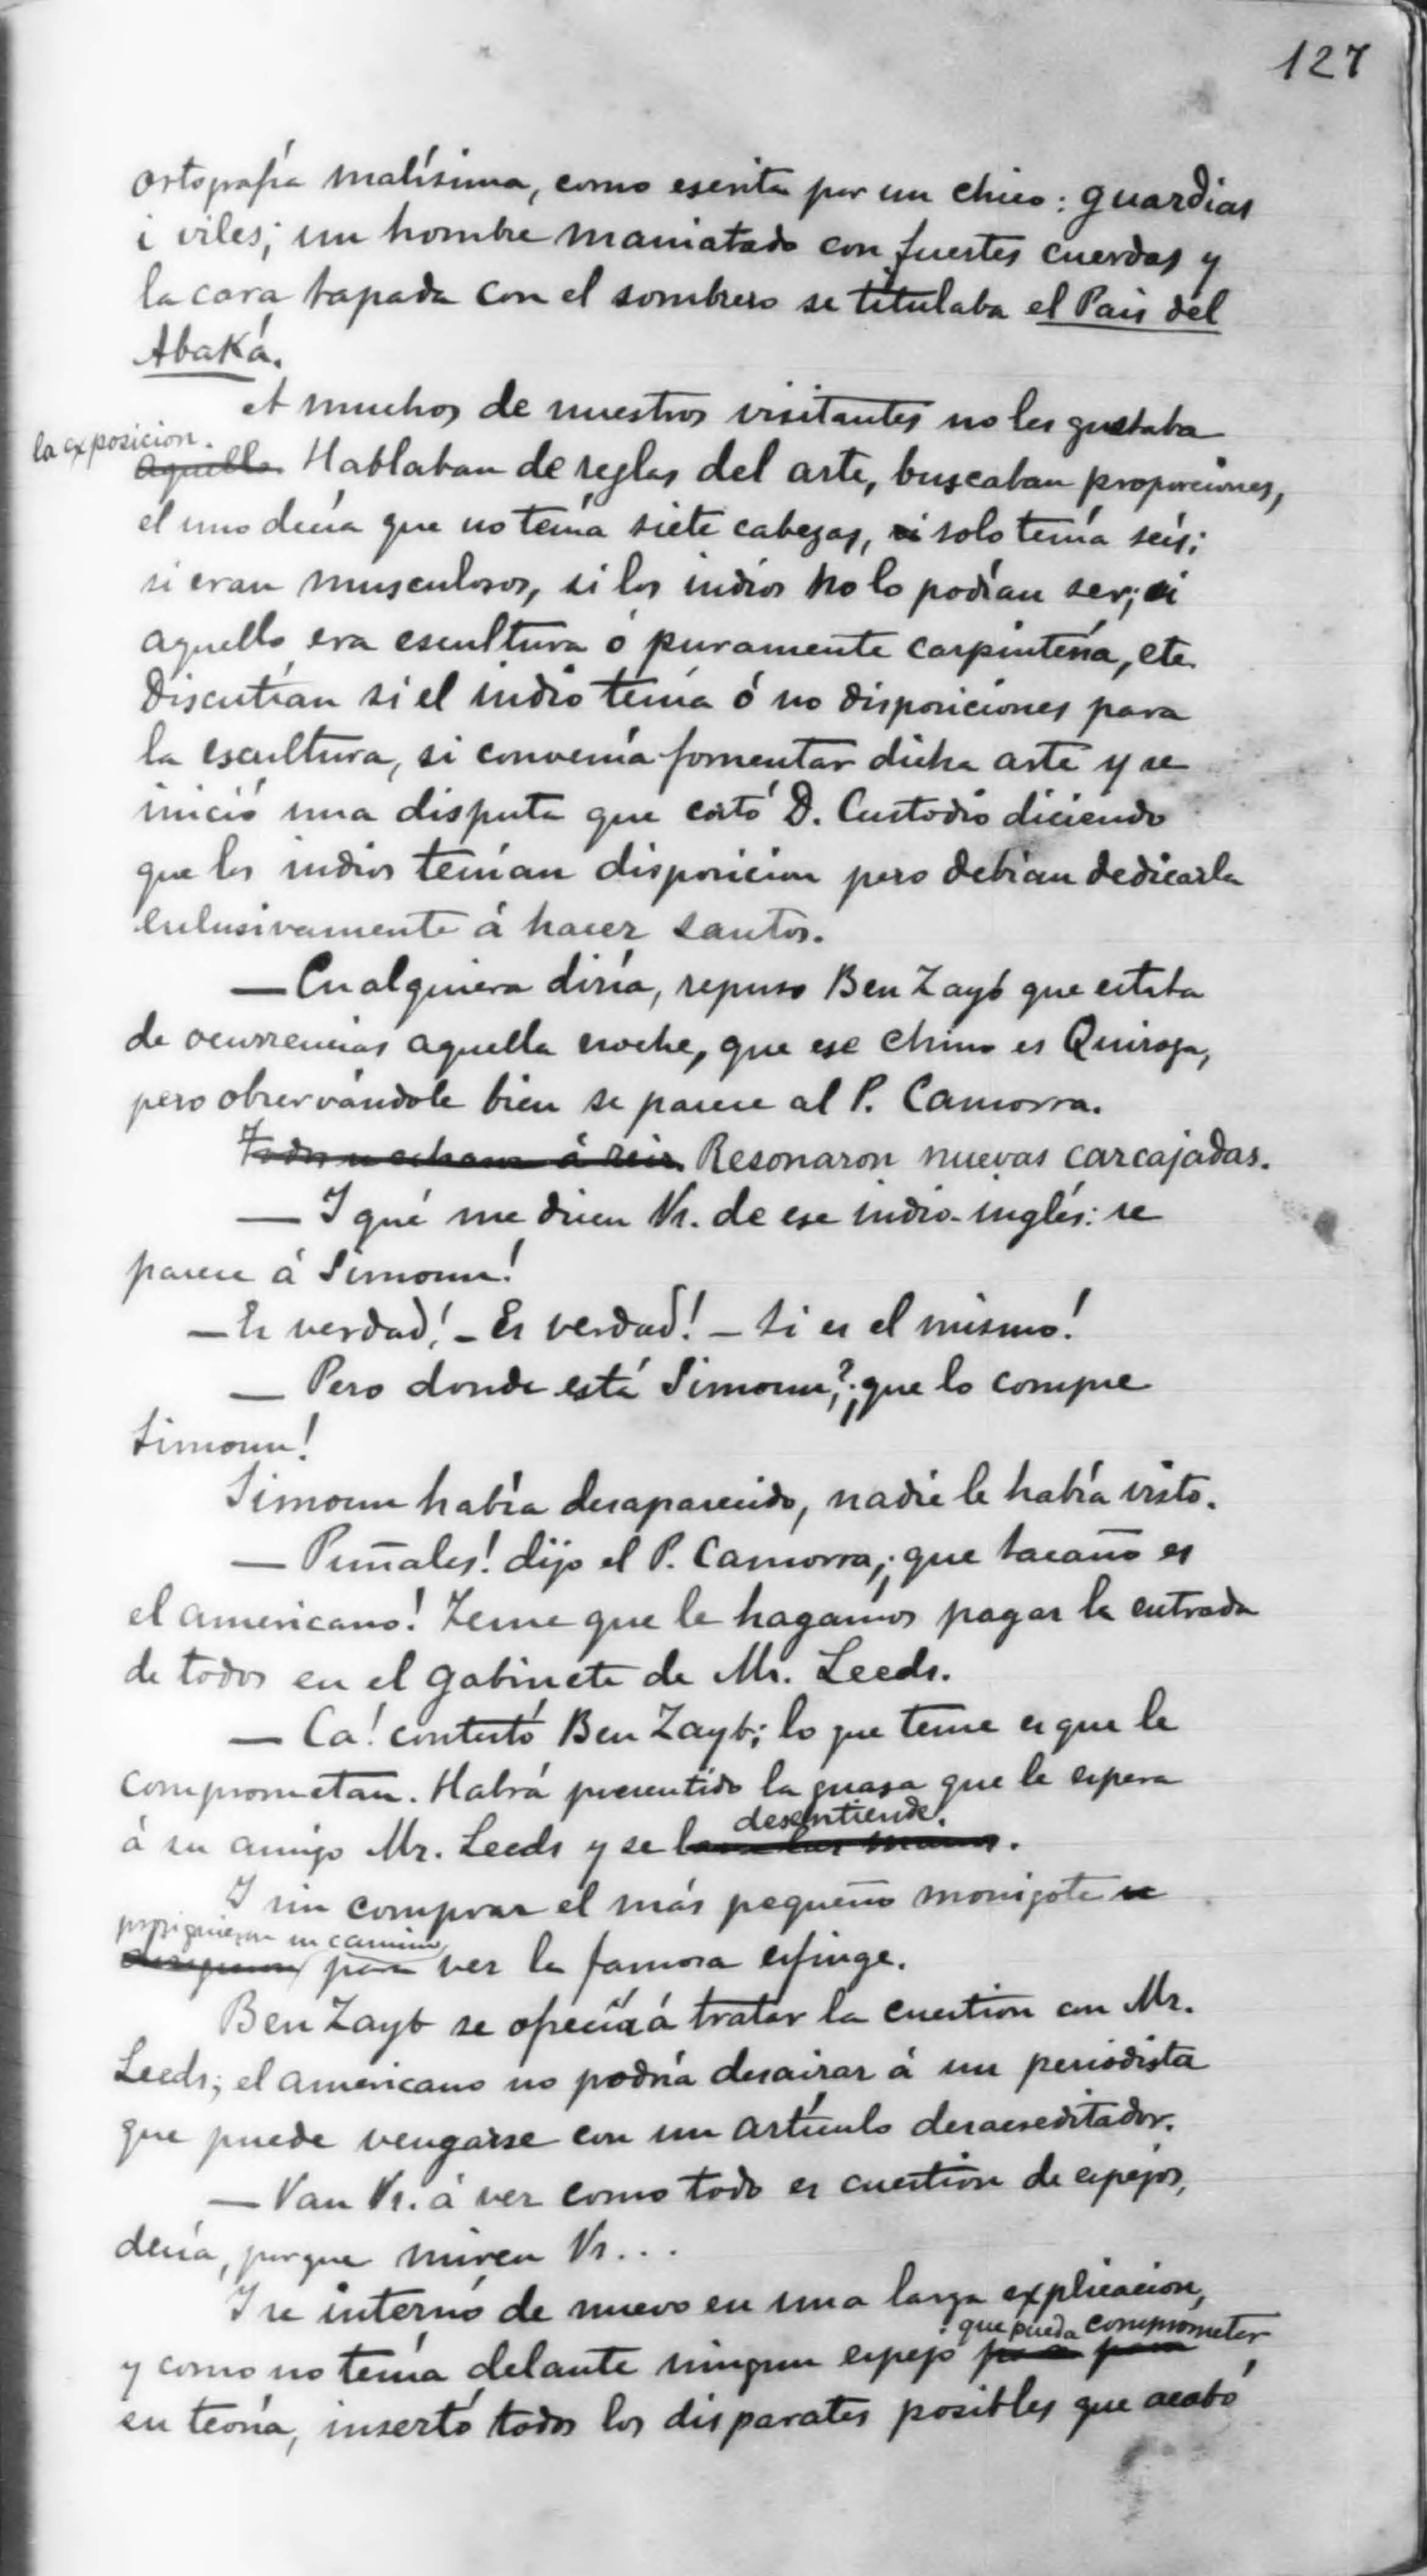 127
ortografía malísima, como escrita por un chico: guardias
i viles; un hombre maniatado con fuertes cuerdas y
la cara tapada con el sombrero se titulaba el País del
Abaká.
A muchos de nuestros visitantes no les gustaba
la exposicion.
aquello. Hablaban de reglas del arte, buscaban proporciones,
el uno decía que no tenía siete cabezas, si solo tenía seis;
si eran musculosos, si los indios no lo podían ser; si
aquello era escultura ó puramente carpintería, etc.
Discutían si el indio tenía ó no disposiciones para
la escultura, si convenía fomentar dicha arte y se
inició una disputa que cortó D. Custodio diciendo
que los indios tenían disposicion pero debían dedicarla
esclusivamente á hacer santos.
— Cualquiera diría, repuso Ben Zayb que estaba
de ocurrencias aquella noche, que ese chino es Quiroga,
pero observándole bien se parece al P. Camorra.
Todos se echaron á reir. Resonaron nuevas carcajadas.
— Y qué me dicen Vs. de ese indio-inglés: se
parece á Simoun!
— Es verdad! — Es verdad! — Si es el mismo!
— Pero donde está Simoun?; que lo compre
Simoun!
Simoun había desaparecido, nadie le había visto.
— Puñales! dijo el P. Camorra, ¡que tacaño es
el americano! Teme que le hagamos pagar la entrada
de todos en el gabinete de Mr. Leeds.
— Ca! contestó Ben Zayb; lo que teme es que le
comprometan. Habrá presentido la guasa que le espera
desentiende.
á su amigo Mr. Leeds y se lava las manos.
Y sin comprar el más pequeño monigote se
prosiguieron su camino
dirigieron para ver la famosa esfinge.
Ben Zayb se ofrecía á tratar la cuestion con Mr.
Leeds; el americano no podría desairar á un periodista
que puede vengarse con un artículo desacreditador.
— Van Vs. á ver como todo es cuestion de espejos,
decía, porque miren Vs...
Y se internó de nuevo en una larga explicacion,
que pueda comprometer
y como no tenía delante ningun espejo
su teoría, insertó todos los disparates posibles que acabó